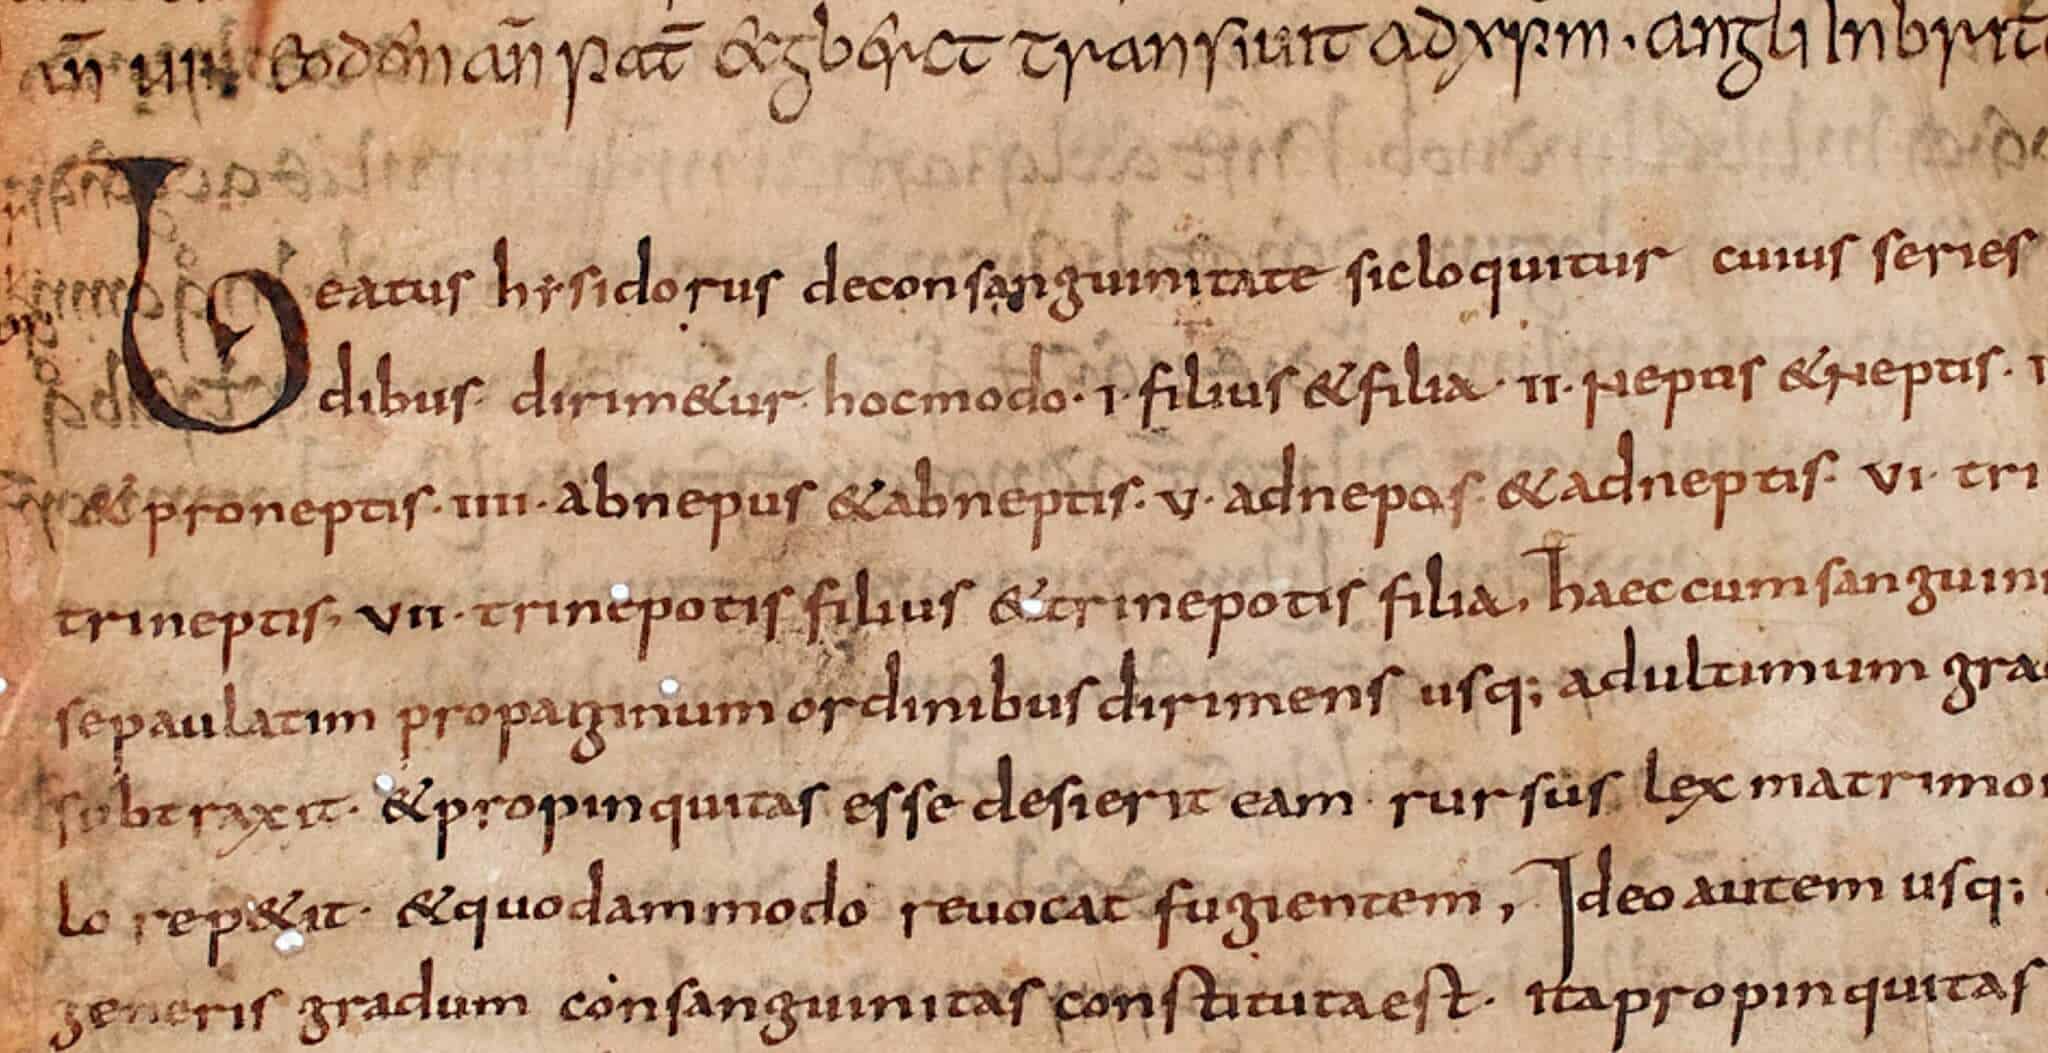 an̄ uii. eodem an̄ pat̄ ecgberct transiuit ad xp̄m. angli In brit̄
Beatus hysidorus deconsanguinitate sicloquitur cuius series
dibus dirim&ur hocmodo. I. filius &filia. II. Nepus &Neptis.
&proneptis. IIII. abnepus &abneptis. V. adnepos. &adneptis. VI. tri
trineptis. VII. trinepotis filius &trinepotis filia, haeccumsanguini
sepaulatim propaginum ordinibus dirimens usq; adultimum gra
subtraxit. &propinquitas esse desierit eam rursus lex matrimo
lo rep&it. &quodammodo reuocat fugientem, Ideo autem usq;
generis gradum consanguinitas constituta est. ita propinquitas